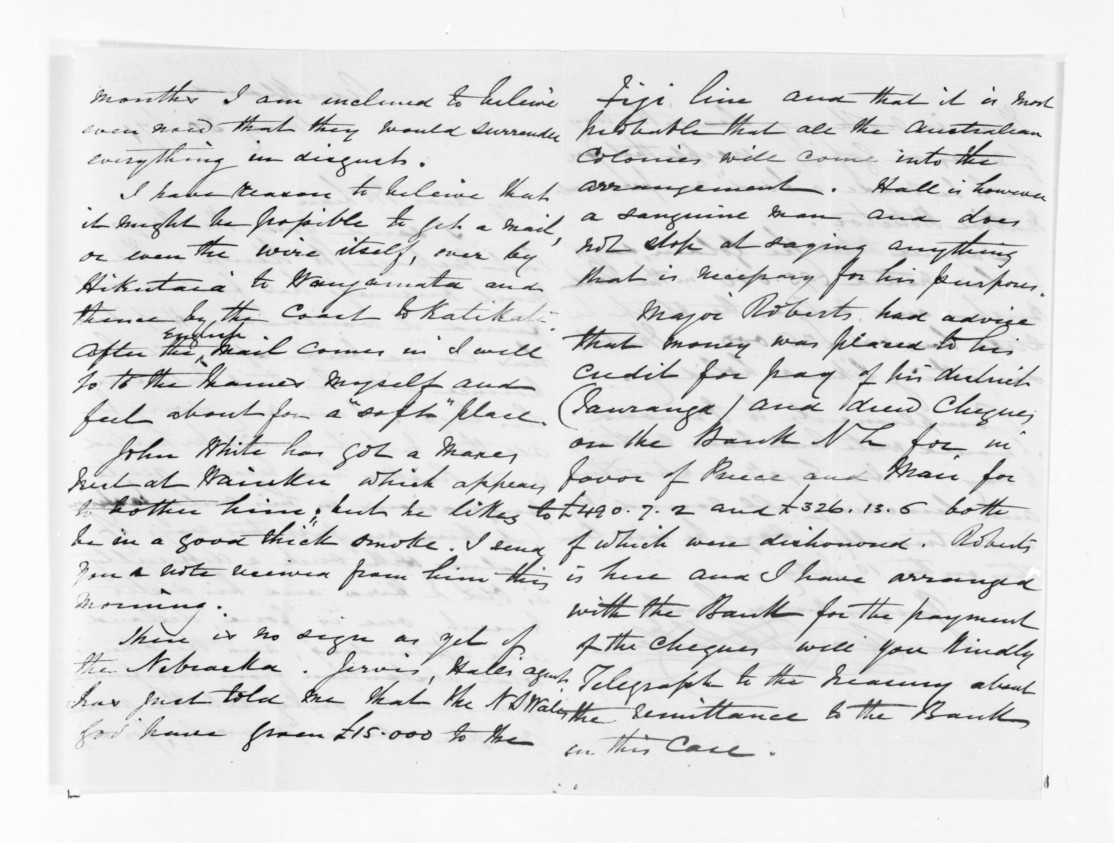 months I am inclined to beleive
even now that they would surrender
everything in disgust.
I have reason to beleive that
it might be possible to get a mail,
or even the wire itself, over by
Hikutaia to Wangamata and
thence by the Coast to Katikati.
After the English Mail comes in I will
go to the Thames myself and
feel about for a "soft" place.
John White has got a Maori
at which appears
to bother him, but he likes to
be in a good thick smoke. I send
you a note received from him this
morning.
There is no sign as yet of
the Nebraska. Jervis, Hall's agent,
has just told me that the N S Wales
Gov have given £15.000 to the
Fiji line and that it is most
probable that all the Australian
Colonies will come into the
arrangement. Hall is however
a sanguine man and does
not stop at saying anything
that is necessary for his purpose.
Major Roberts had advice
that money was placed to his
credit for pay of his district
(Tauranga) and drew cheques
on the Bank N Z for in
favor of Preece and Mair for
£490.7.2 and £326.13.6 both
of which were dishonored. Roberts
is here and I have arranged
with the Bank for the payment
of the cheques will you kindly
Telegraph to the Treasury about
the remittance to the Bank
in this Case.